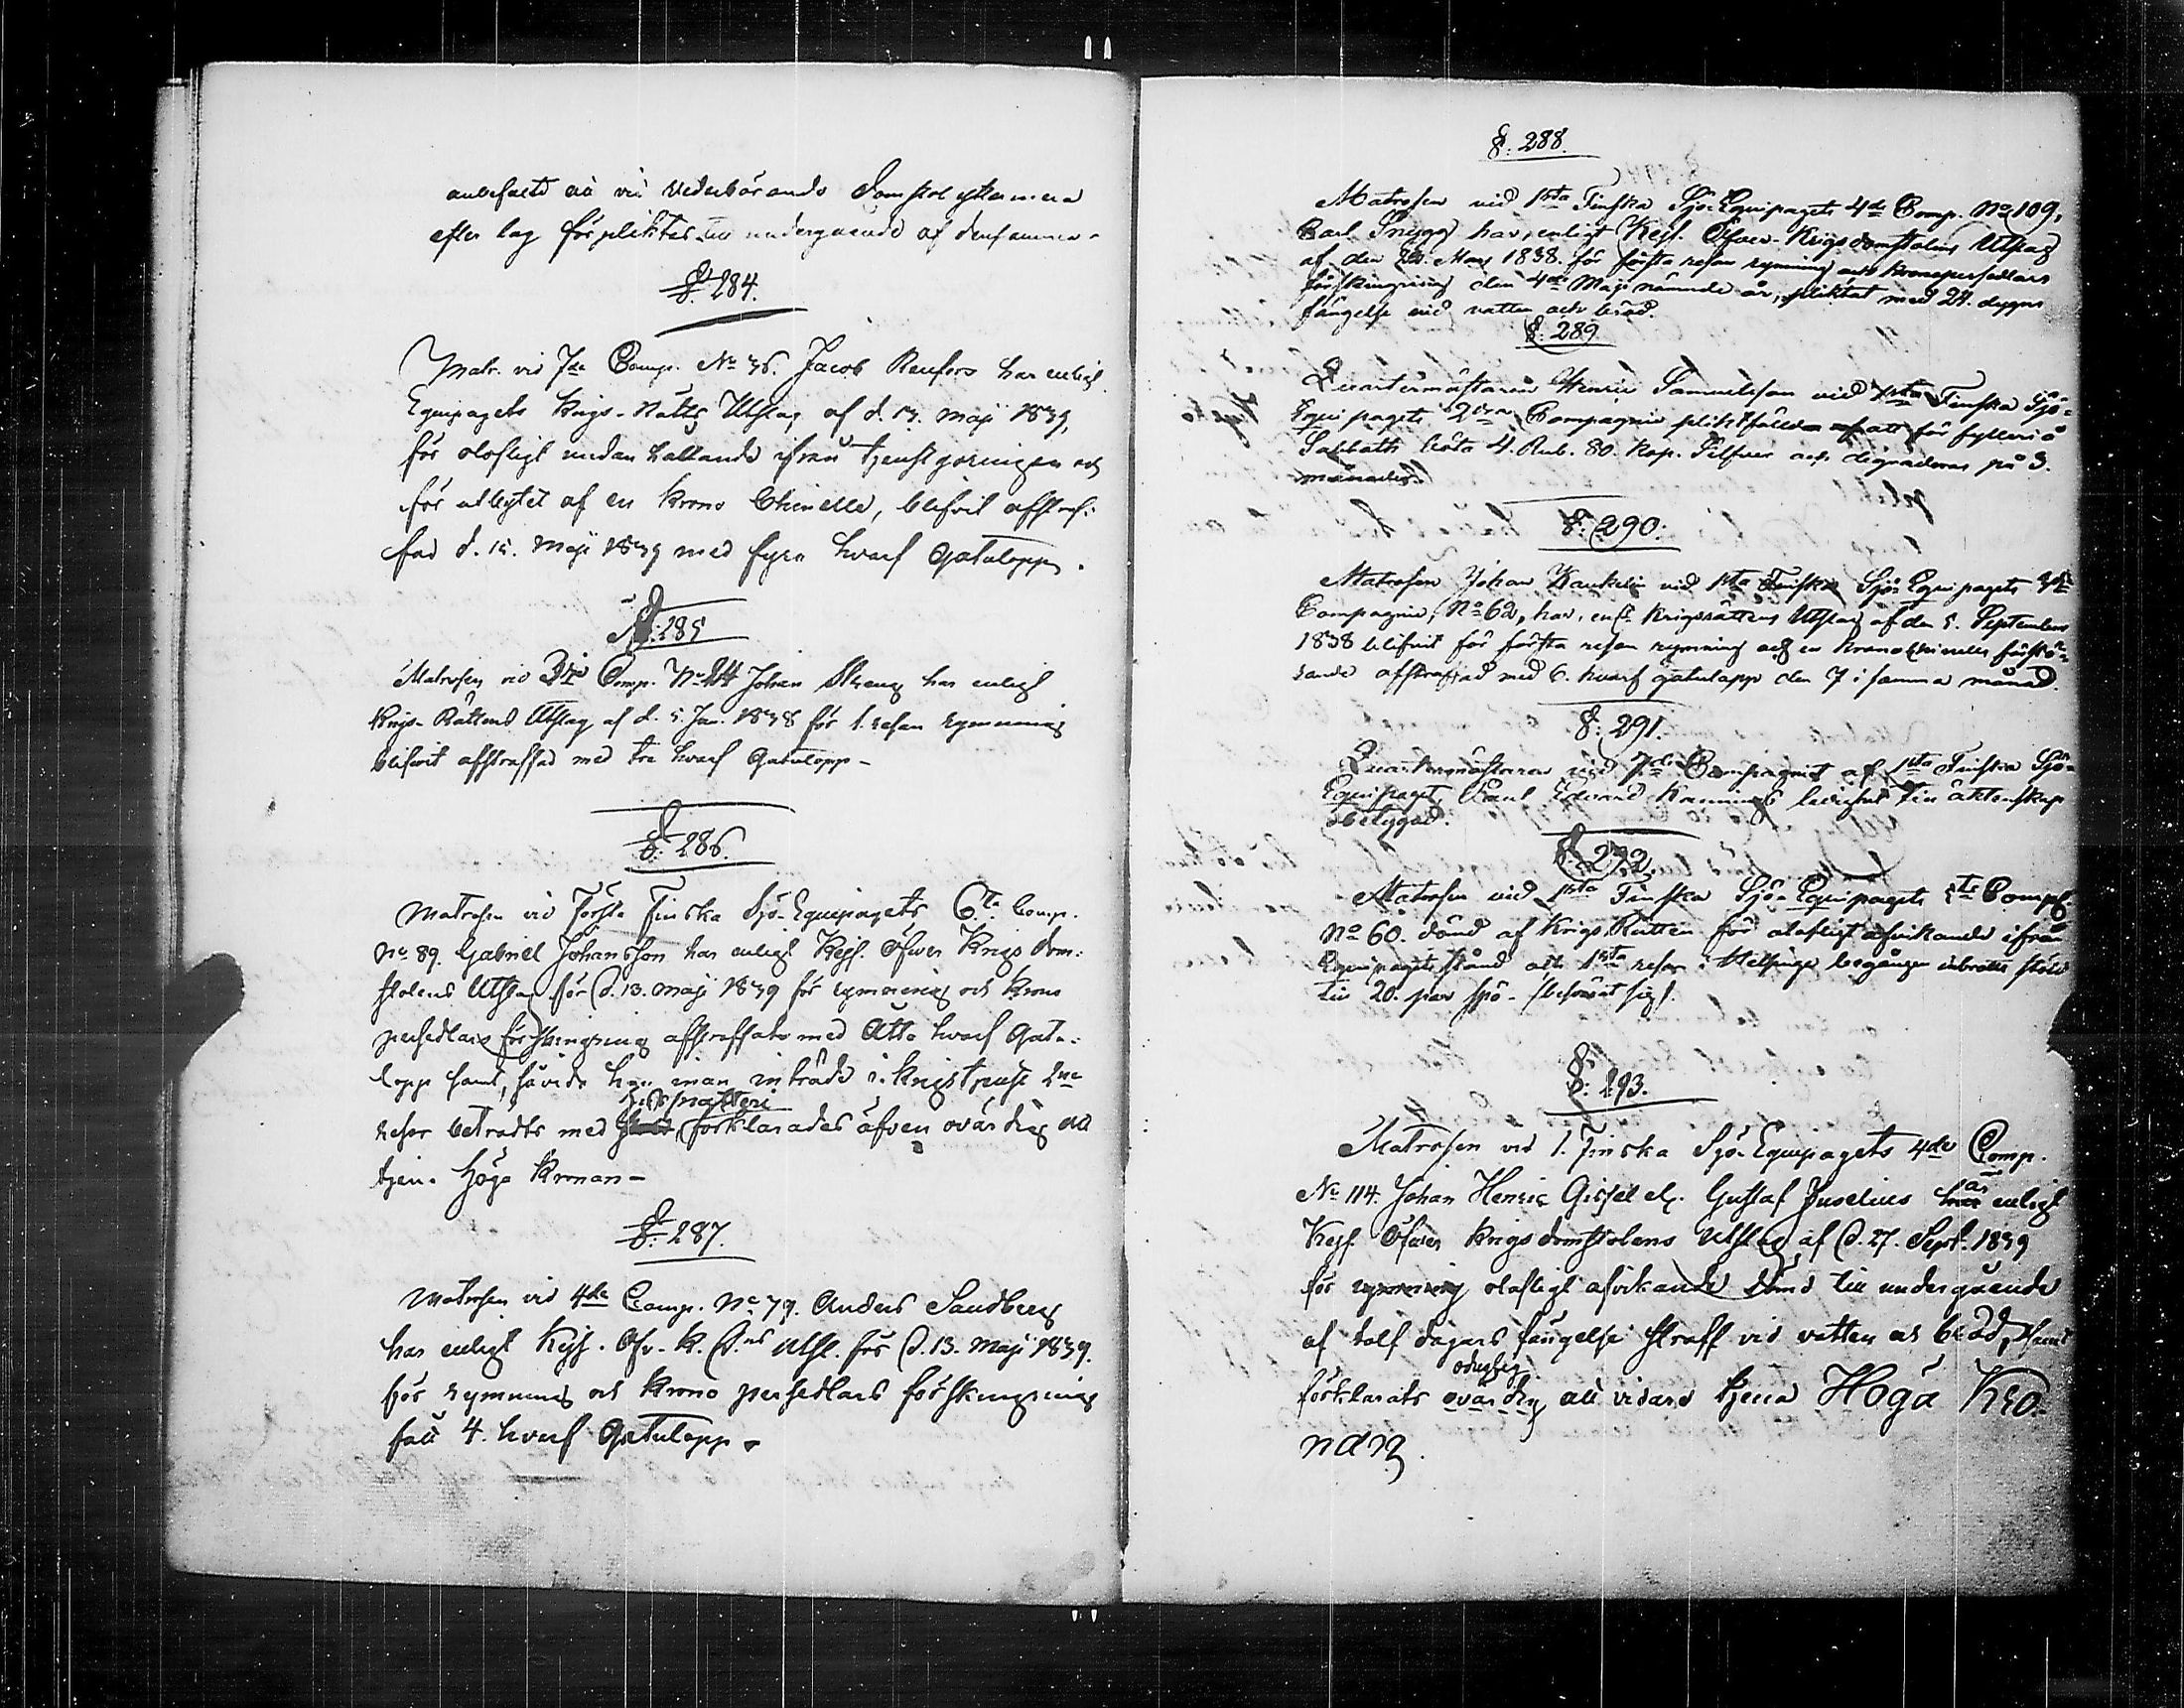 anbefalts att vid Vederbörande Domstol yttermera
efter lag förpliktas till undergående af densamma.
§: 284.
Matr. vid 7de Comp. No 36. Jacob Renfors har enligt
Equipagets Krigs-Rätts Utslag af d. 13. Maji 1839,
för olofligt undanhallande ifrån tjenstgöringen och
för utbytet af en Krono Chinelle, blifvit afstraf-
fad d. 15. Maji 1839 med fyra hvarf Gatulopp.
§: 285
Matrosen vid 3die Comp. No 24 Johan Skreng har enligt
Krigs-Rättens Utslag af d. 5. Jan. 1838 för 1. resan rymning
blifvit afstraffad med tre hvarf Gatulopp-
§: 286.
Matrosen vid Första Finska Sjö-Equipagets 6ta Comp.
No 89. Gabriel Johansson har enligt Kejs. Öfver Krigs dom-
stolens Utslag för d. 13. Maji 1839 för rymning och Krono
persedlars förskingring afstraffats med åtta hvarf Gatu-
lopp samt, såvida han innan inträde i Krigstjenst 2ne
resor beträdts med snatteri förklarades äfven ovärdig att
tjena Höga Kronan-
§: 287.
Matrosen vid 4de Comp. No 79. Anders Sandberg
har enligt Kejs. Öfv. K. D.ns Utsl. för d. 13. Maji 1839.
för rymning och Krono persedlars förskingring
fått 4. hvarf Gatulopp.
§: 288.
Matrosen vid 1sta Finska Sjö-Equipagets 4de Comp. No 109,
Carl Snygg har, enligt Kejs. Öfver-Krigsdomstolens Utslag
af den 22. Mars 1838. för första resan rymning och Kronopersedlars
förskingring den 4de Maji nämnde år, pliktat med 24. dygns
fängelse vid vatten och bröd.
§: 289.
Quartermästaren Henric Samuelsson vid 1sta Finska Sjö-
Equipagets 2dra Compagnie pliktfälld att för fylleri å
Sabbath böta 4. Rub. 80. Kop. Silfver och degraderas på 3.
månader.
§: 290.
Matrosen Johan Kankelin vid 1sta Finska Sjö-Equipagets
Compagnie, No 62, har, enl. Krigsrättens Utslag af den 5. September
1838 blifvit för första resan rymning och en Kronochinelles förstö-
rande afstraffad med 6. hvarf gatulopp den 7 i samma månad.
§: 291.
Quartermästaren vid 7de Compagniet af 1sta Finska Sjö-
Equipaget Paul Edvard ledighet till äktenskap
betygad.
§: 292.
Matrosen vid 1sta Finska Sjö-Equipagets 5te Comp.
No 60. dömd af Krigs Rätten för olofligt afvikande ifrån
Equipagets stånd och 1sta resan i Helsinge begången inbrotts stöld
till 20. par spö- (befordrat sig).
§: 293.
Matrosen vid 1. Finska Sjö-Equipagets 4de Comp.
No 114. Johan Henric Gissel el. Gustaf Juselius är enligt
Kejs. Öfver Krigs domstolens Utslag af d. 27. Sept. 1839
för rymning olofligt afvikande dömd till undergående
af tolf dagars fängelse straff vid vatten och bröd, samt
oduglig
förklarats ovärdig att vidare tjena Höga Kro-
nan.